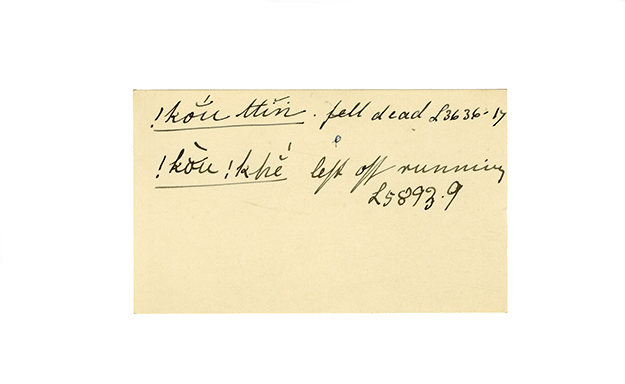 !kŏ́u ttĭn . fell dead L3636-17
!kŏ̀u !khĕ́ left off running
L5893.9